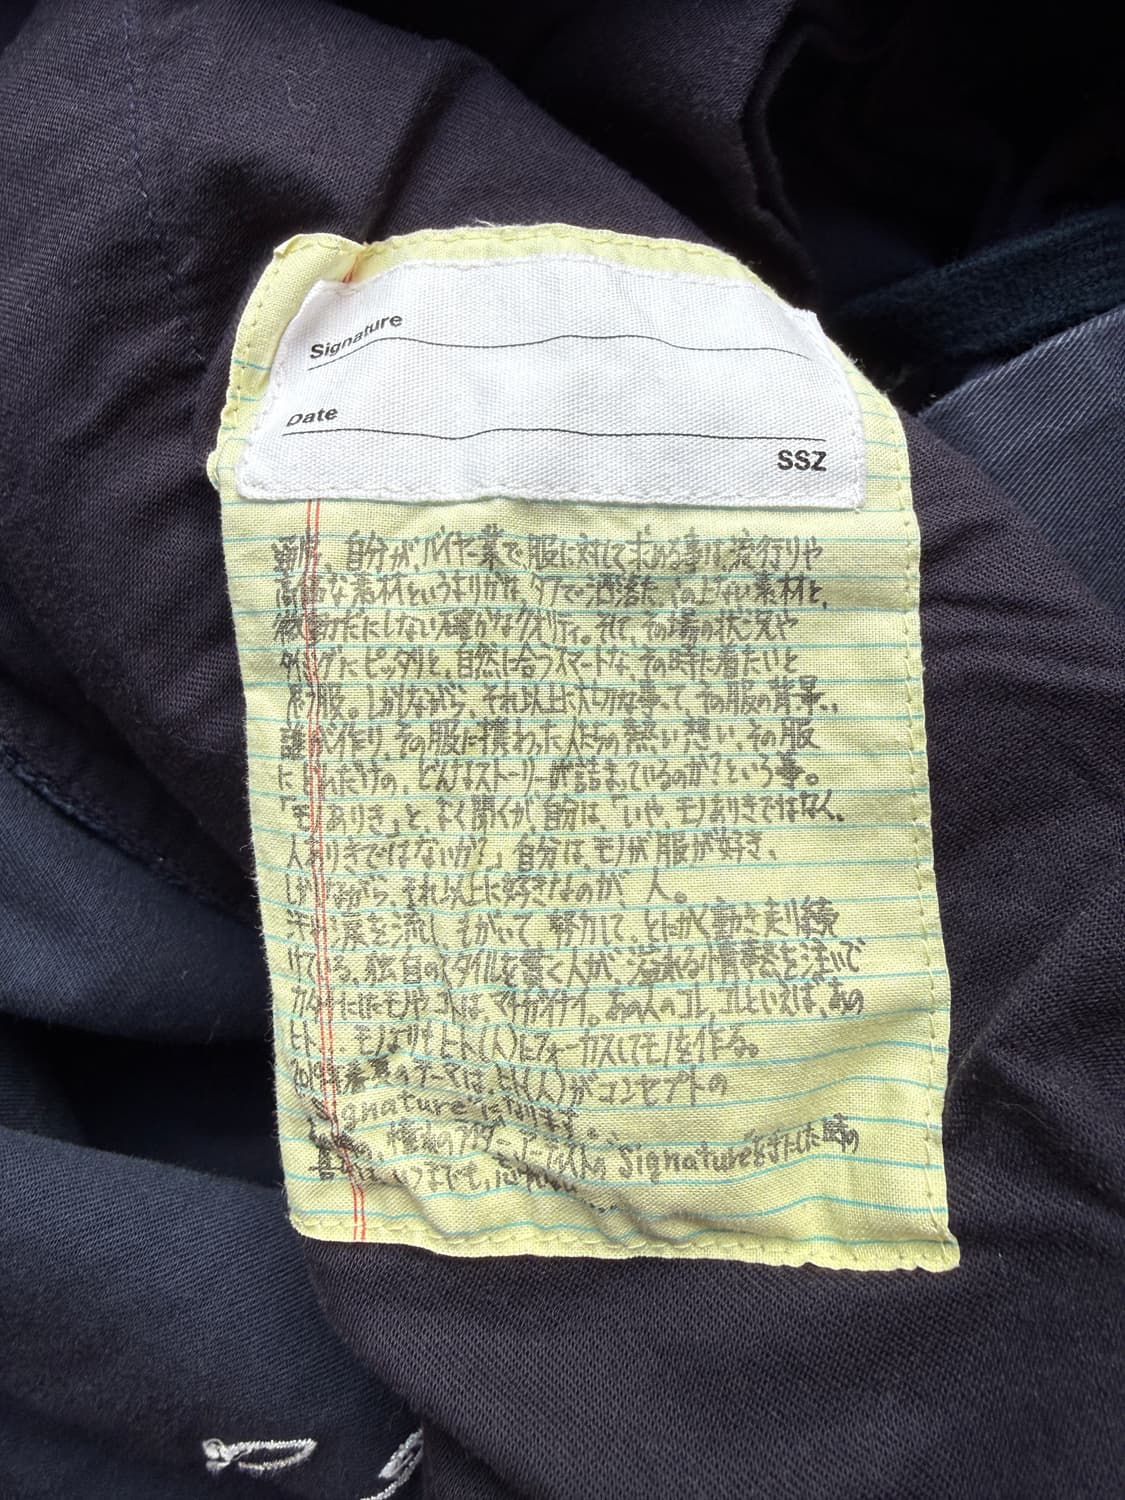 Signature
Date
SSZ
自分が、バイヤー業で、服に対して求める事は、流行りや
な素材というよりかは、タフで洒落た、この上ない素材と、
だにしない確かなクオリティ。そして、その場の状況や
タイミングにピッタリと、自然に合うスマートな、その時に着たいと
服。しかしながら、それ以上に大切な事って、その服の背景、
誰が作り、その服に携わった人たちの熱い想い、その服
にどれだけの、どんなストーリーが詰まっているのか？という事。
「モノありき」と、よく聞くが、自分は、「いや、モノありきではなく、
人ありきではないか？」自分は、モノが、服が好き、
しかしながら、それ以上に好きなのが、人。
汗や涙を流し、もがいて、努力して、とにかく動き走り続
けている、独自のスタイルを貫く人が、溢れる情熱を注いで
カタチにしたモノやコトは、マチガイナイ。あの人のコレ、コレといえば、あの
ヒト、モノよりもヒト（人）にフォーカスしてモノを作る。
2019年春夏のテーマは、ヒト（人）がコンセプトの
"Signature"になります。
Signature